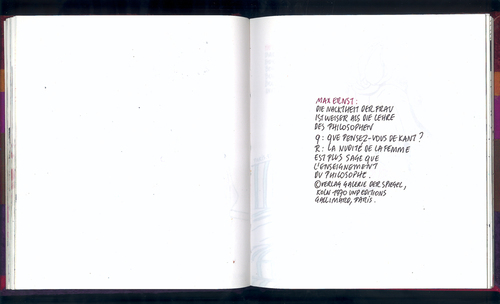 MAX ERNST:
DIE NACKTHEIT DER FRAU
IST WEISER ALS DIE LEHRE
DES PHILOSOPHEN
Q: QUE PENSEZ-VOUS DE KANT?
R: LA NUDITÉ DE LA FEMME
EST PLUS SAGE QUE
L'ENSEIGNEMENT
DU PHILOSOPHE.
©VERLAG GALERIE DER SPIEGEL,
KÖLN 1970 UND EDITIONS
GALLIMARD, PARIS.